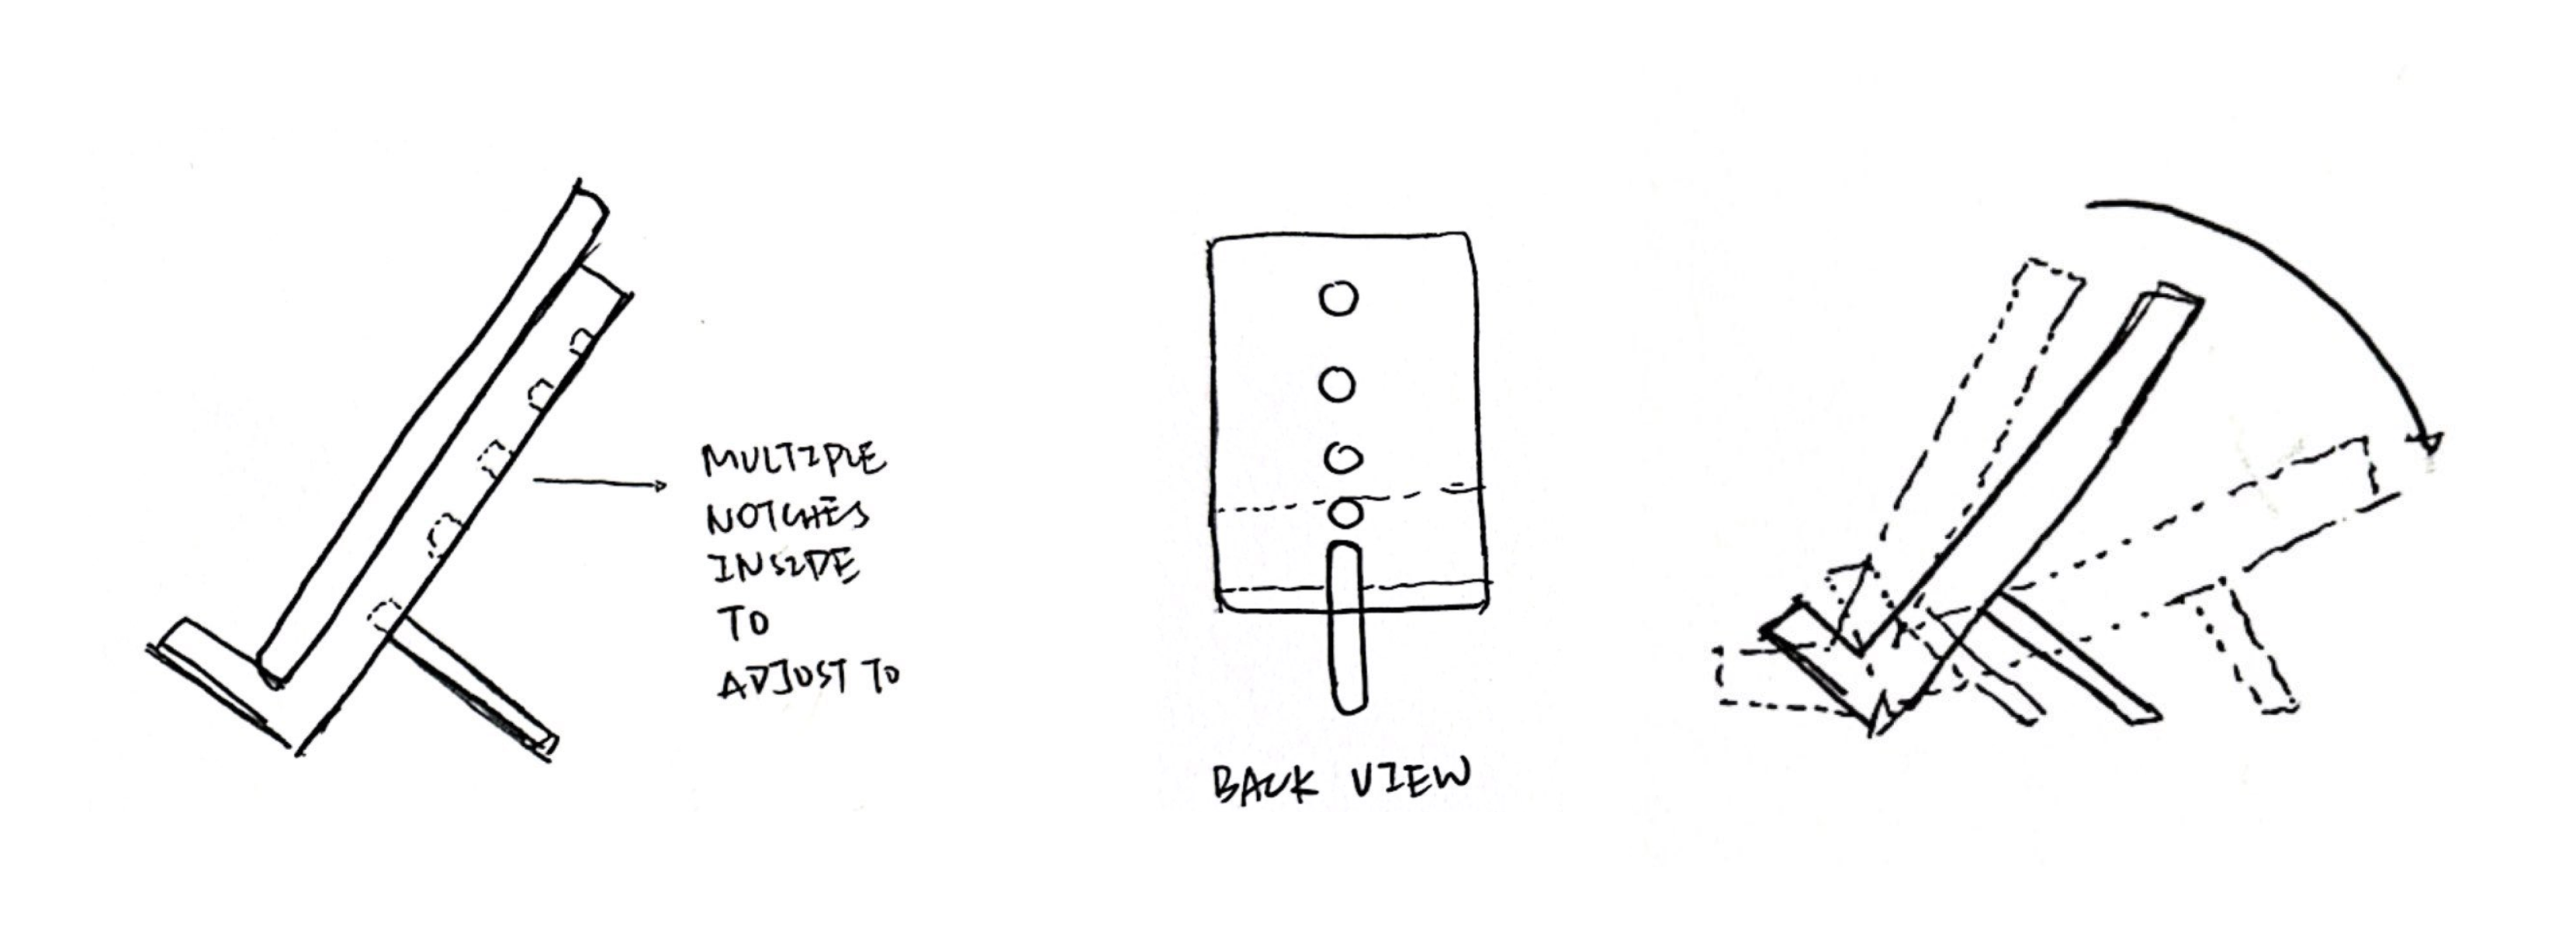 MULTIPLE
NOTCHES
INSIDE
TO
ADJUST TO
BACK VIEW